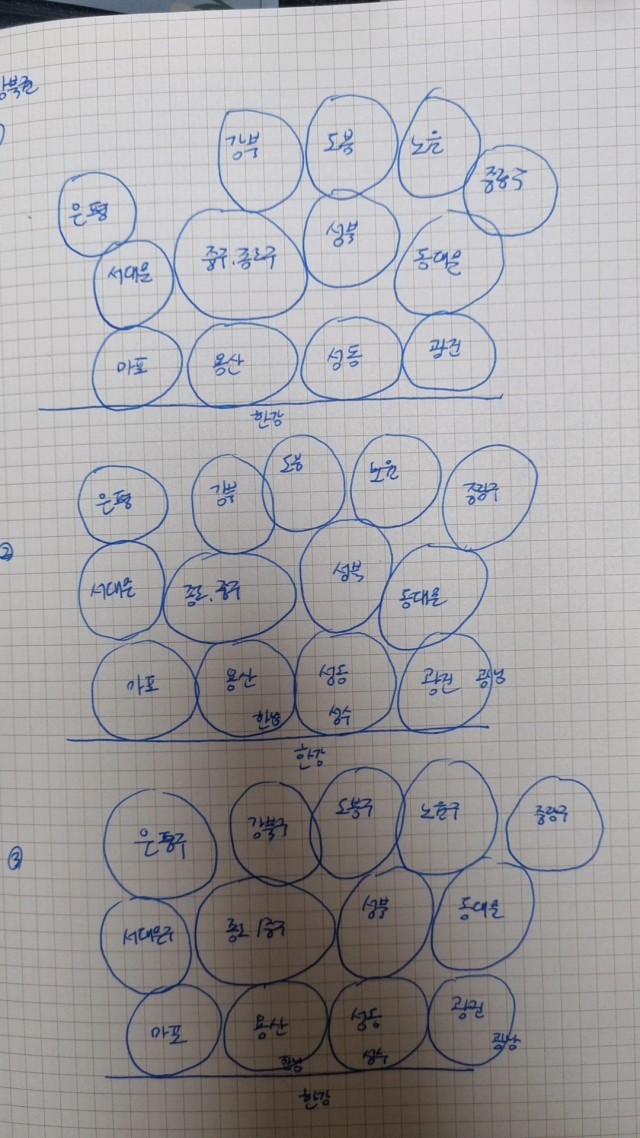 강북권
강북 도봉 노원 중랑구
은평
서대문 중구.종로구 성북 동대문
마포 용산 성동 광진
한강
②
은평 강북 도봉 노원 중랑구
서대문 종로.중구 성북 동대문
마포 용산 성동 광진 광남
한남 성수
한강
③
은평구 강북구 도봉구 노원구 중랑구
서대문구 종로/중구 성북 동대문
마포 용산 성동 광진
한남 성수 광남
한강